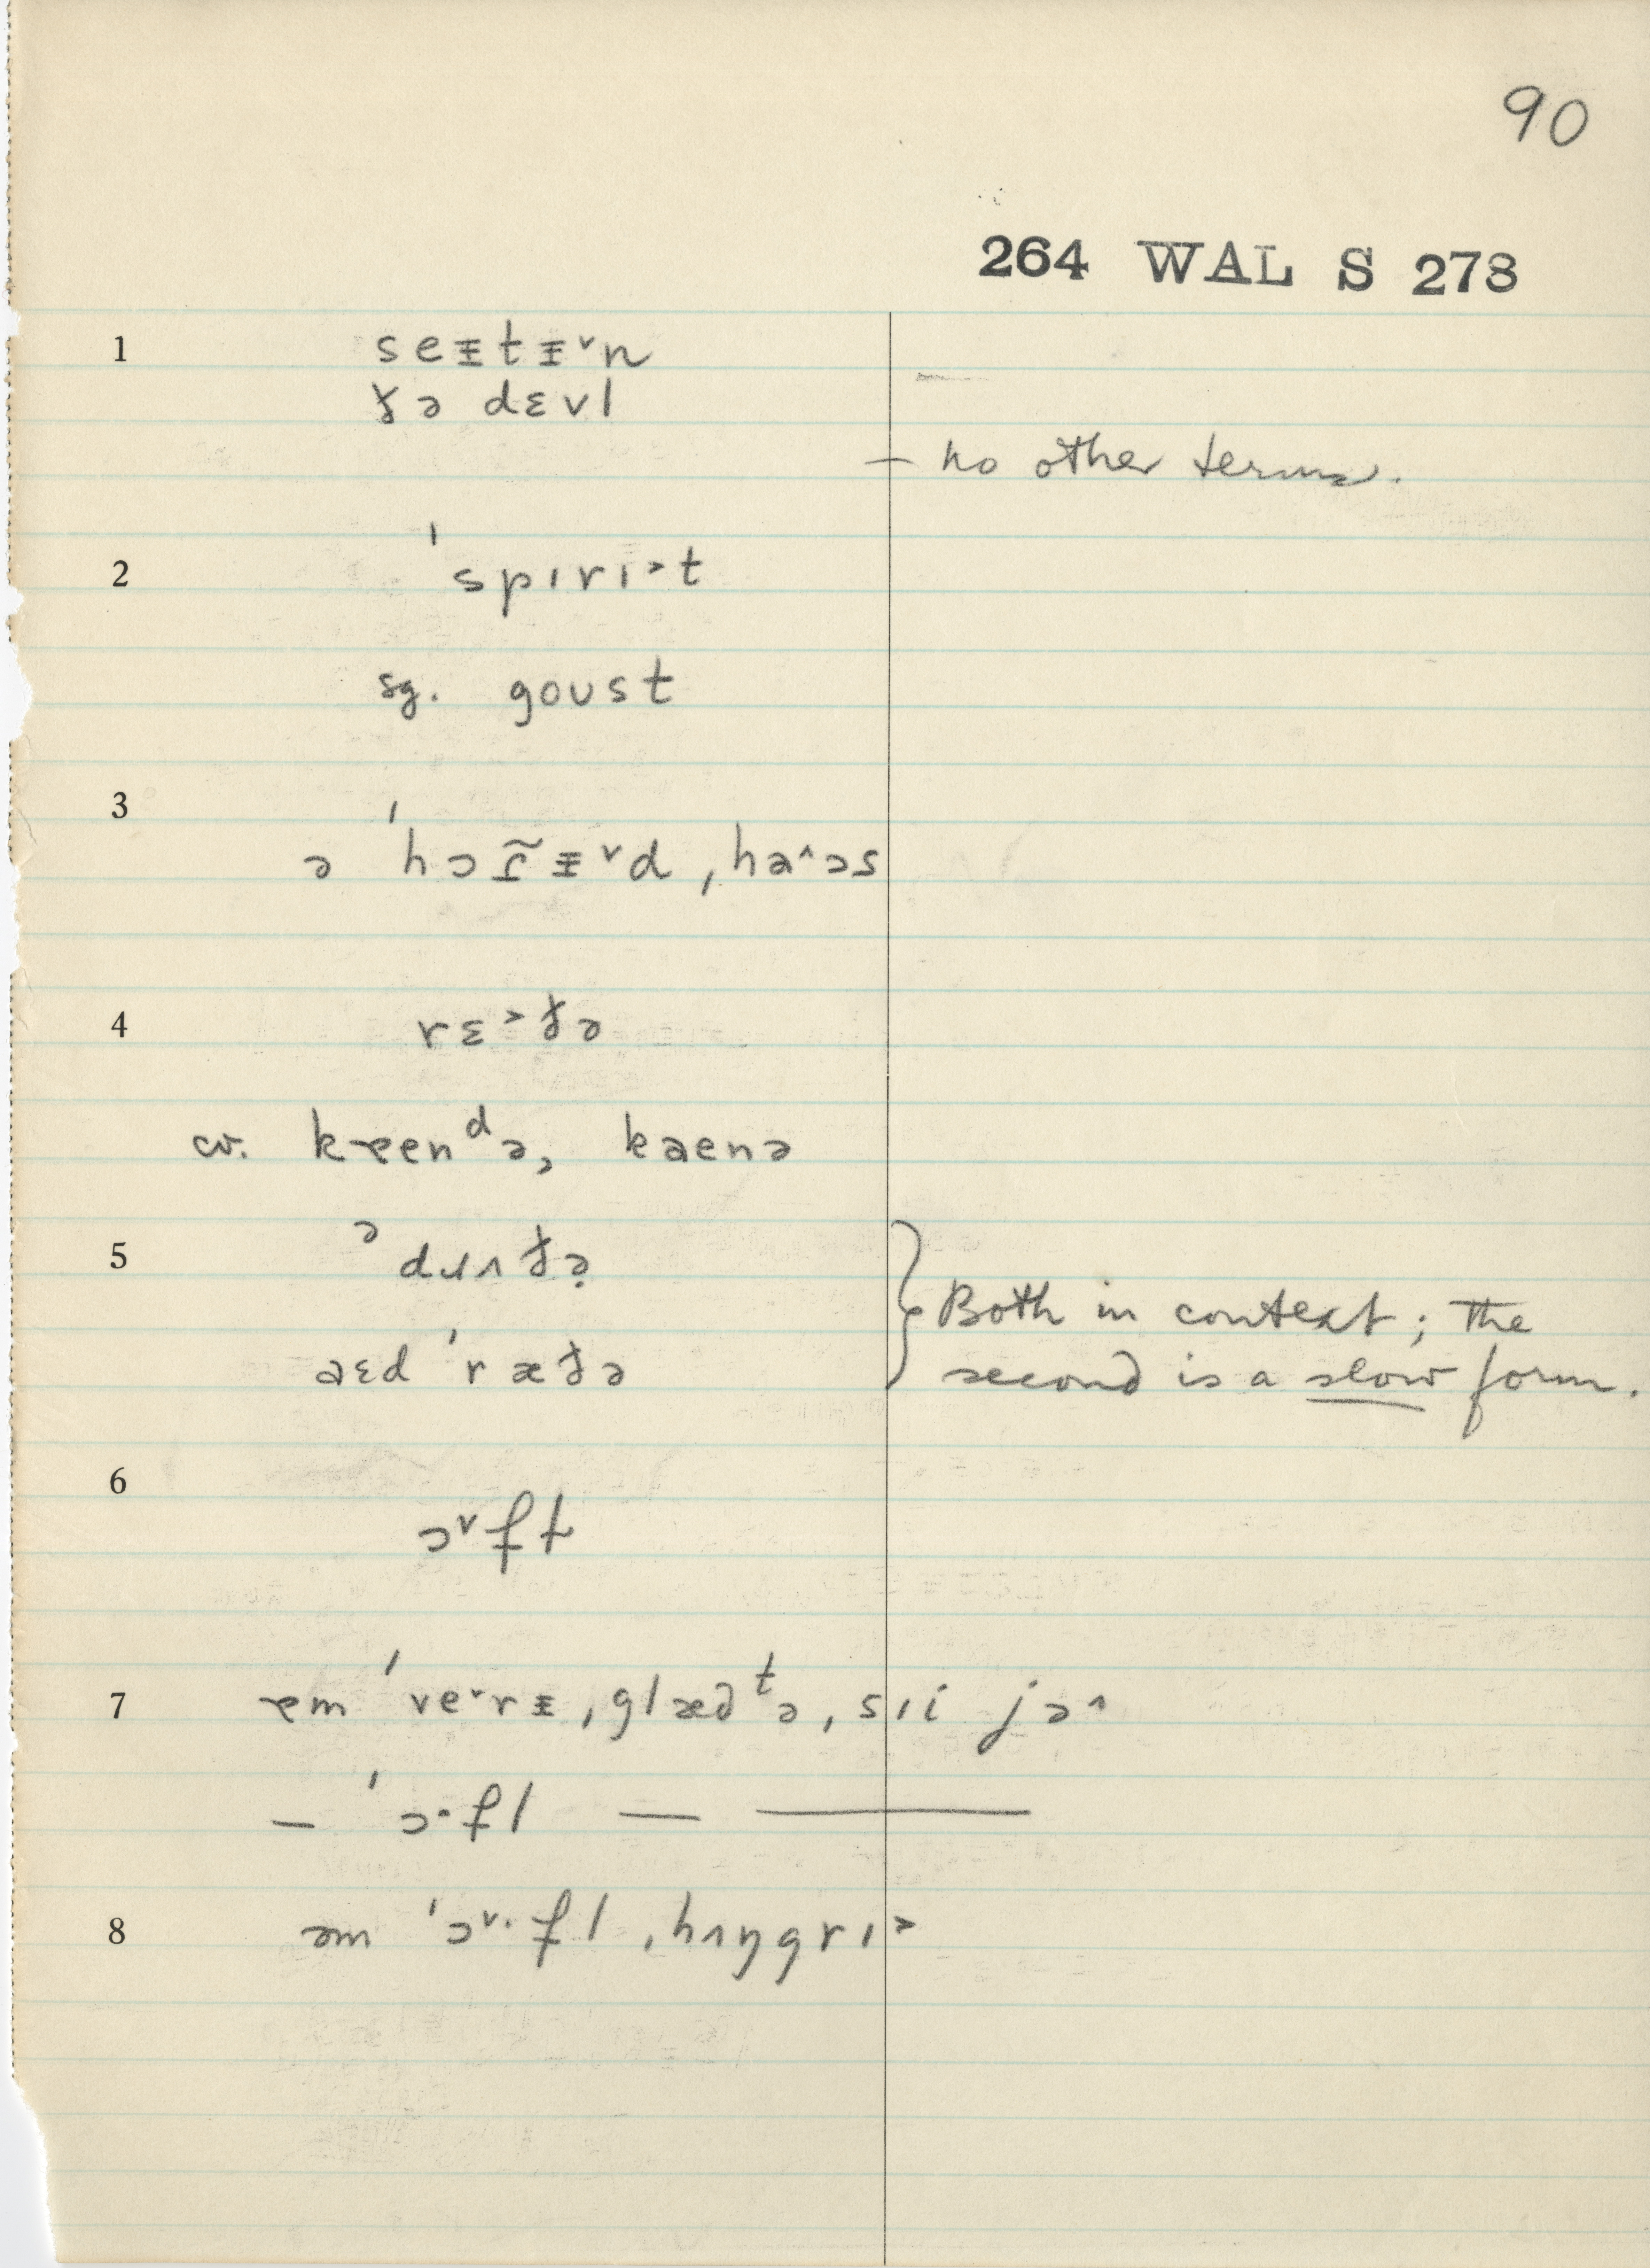 90
264 WAL S 278
1 seᵻtᵻ˅n
ðə dɛvl
– no other terms.
2 ˈspɪrɪ˃t
sg. goust
3 ə ˈhɔɾ̃ᵻ˅d ˌha˄ɔs
4 rɛ˃ðə
cv. kɐenᵈə, kaenə
5 ə dɹʌðə
Both in context; the
aɛd ˈræðə
second is a slow form.
6 ɔ˅ft
7 ɐm ˈve˅rᵻ ˌglæd ᵗə ˌsɪi jə˄
– ˈɔ·fl — ———
8 əm ˈɔ˅·fl ˌhʌŋgrɪ˃